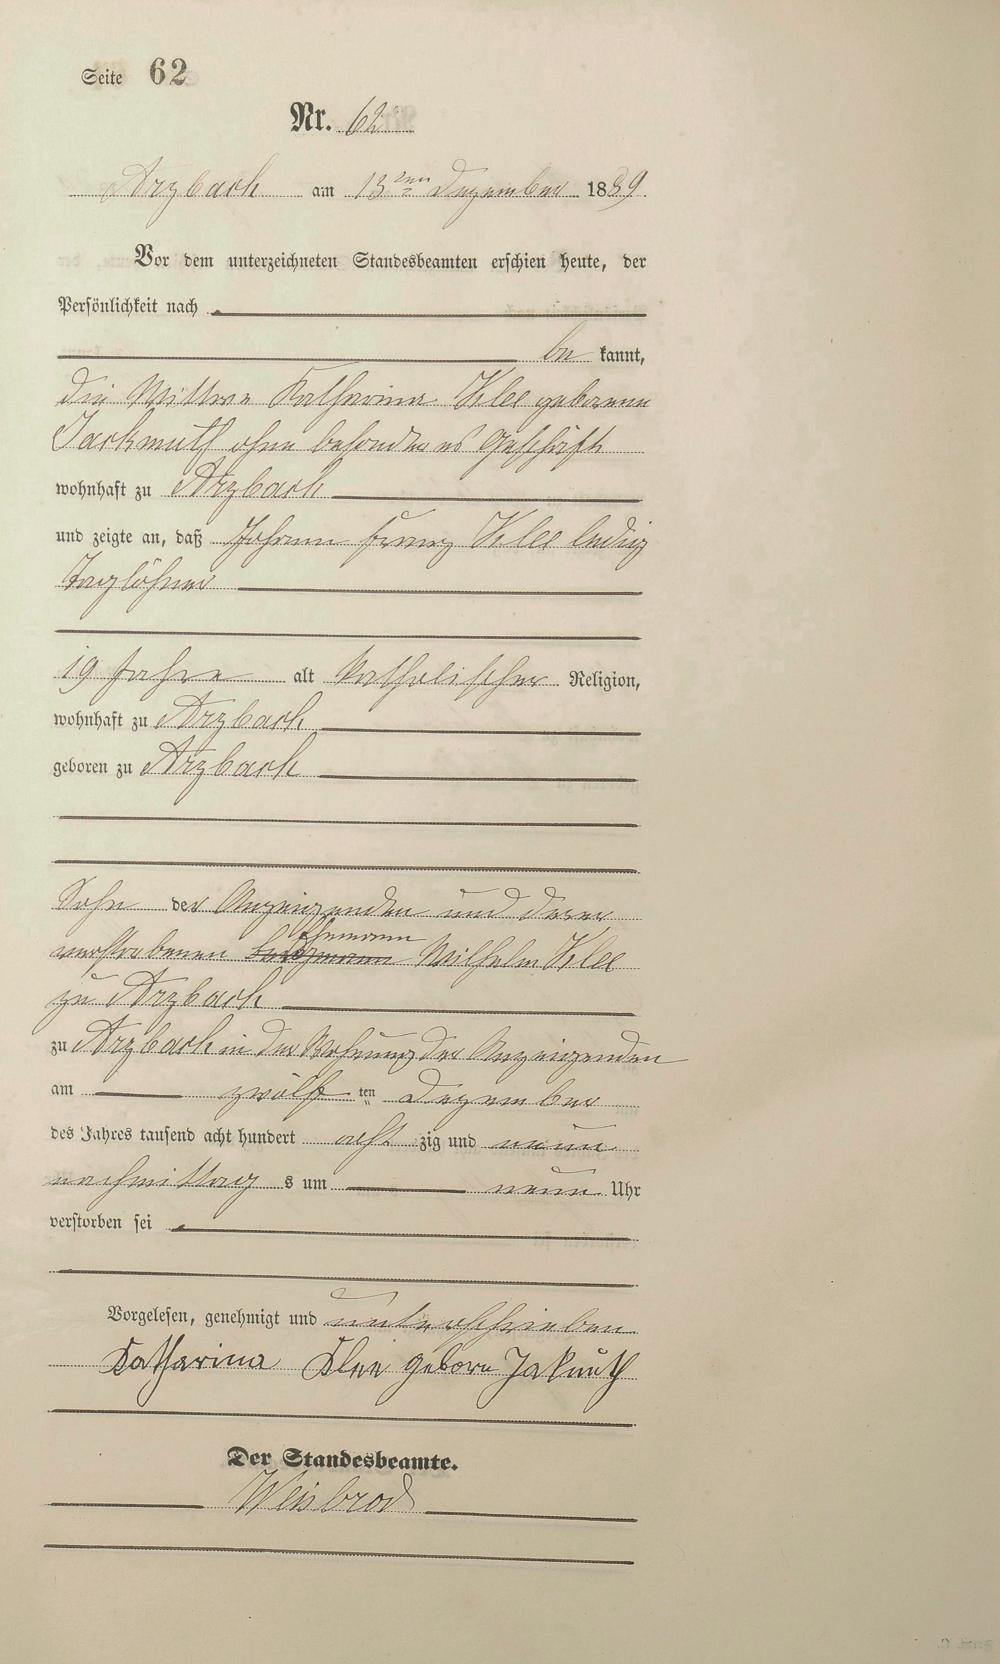 Seite 62
Nr. 62
Arzbach am 13ten Dezember 1889.
Vor dem unterzeichneten Standesbeamten erschien heute, der
Persönlichkeit nach
be kannt,
die Wittwe Katharina Klee geborene
Jackmuth ohne besonderes Geschäft
wohnhaft zu Arzbach
und zeigte an, daß Johann Franz Klee ledig
Taglöhner
19 Jahre alt katholischer Religion,
wohnhaft zu Arzbach
geboren zu Arzbach
Sohn der Anzeigenden und deren
Ehemann
verstorbenen Wilhelm Klee
zu Arzbach
zu Arzbach in der Wohnung der Anzeigenden
am zwölf ten Dezember
des Jahres tausend acht hundert acht zig und neun
nachmittag s um neun Uhr
verstorben sei
Vorgelesen, genehmigt und unterschrieben
Katharina Klee geborn Jakmuth
Der Standesbeamte.
Weisbrod